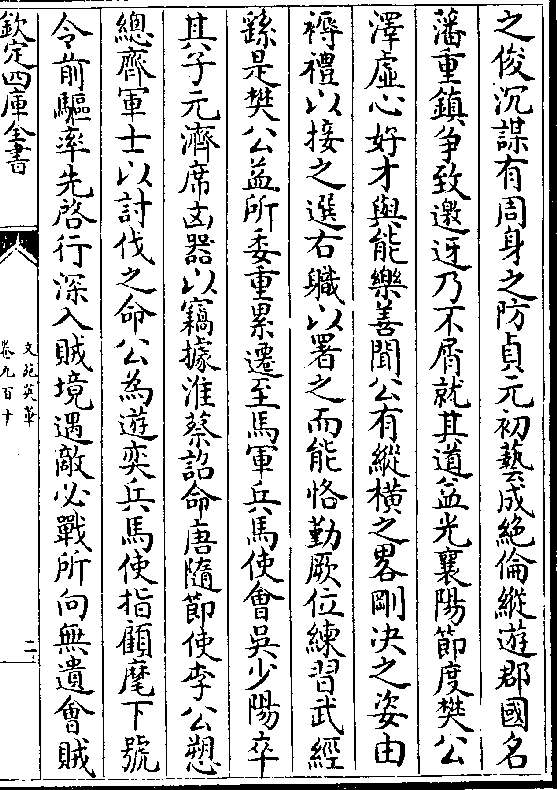 之俊沉謀有周身之防貞元初藝成絶倫縱遊郡國名
藩重鎮爭致邀迓乃不屑就其道益光襄陽節度樊公
澤虛心好才與能樂善聞公有縱橫之畧剛决之姿由
褥禮以接之選右職以署之而能恪勤厥位練習武經
繇是樊公益所委重累遷至馬軍兵馬使會吳少陽卒
其子元濟席凶器以竊據淮蔡詔命唐隨節使李公愬
總齊軍士以討伐之命公為遊奕兵馬使指顧麾下號
令前驅率先啓行深入賊境遇敵必戰所向無遺會賊
欽定四庫全書
文苑英華
卷九百十
二